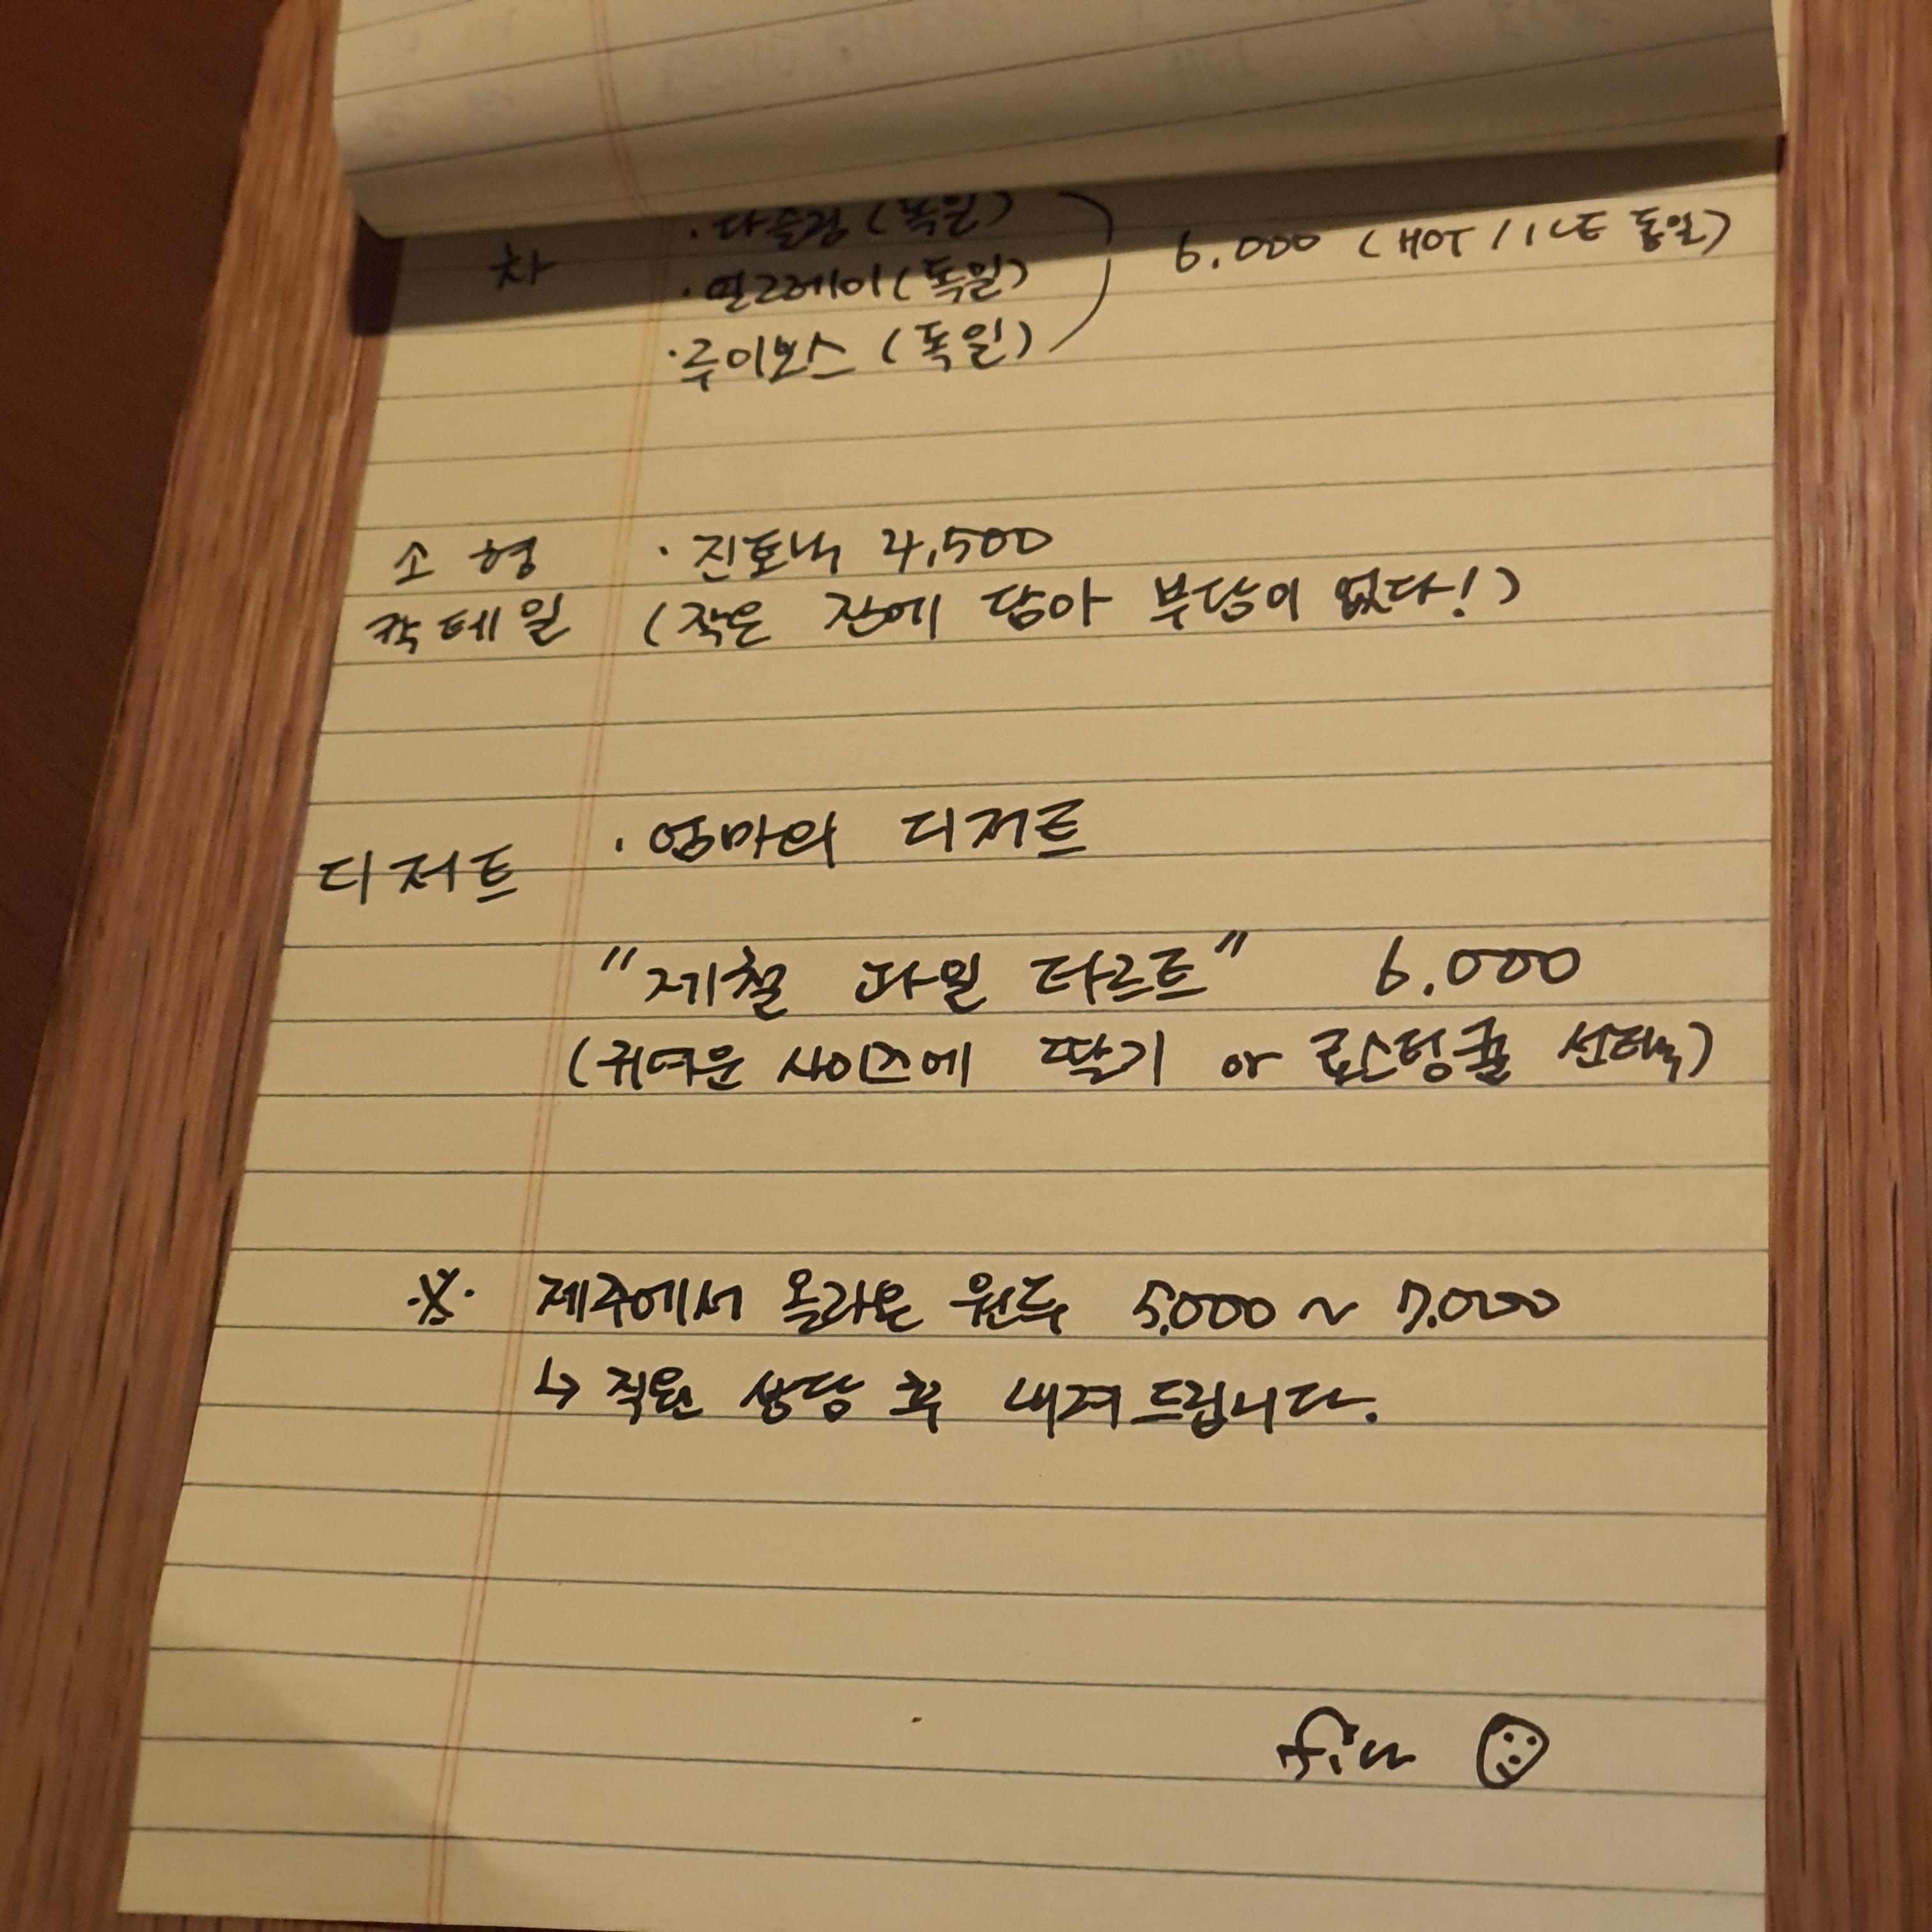 차 · 다즐링 (독일)
· 얼그레이 (독일) 6.000 (HOT / ICE 동일)
· 루이보스 (독일)
소형 · 진토닉 4,500
칵테일 (작은 잔에 담아 부담이 없다!)
· 엄마의 디저트
디저트
"제철 과일 타르트" 6.000
(귀여운 사이즈에 딸기 or 로스팅귤 선택)
※ 제주에서 올라온 원두 5,000 ~ 7.000
↳ 직원 상담 후 내려드립니다.
fin